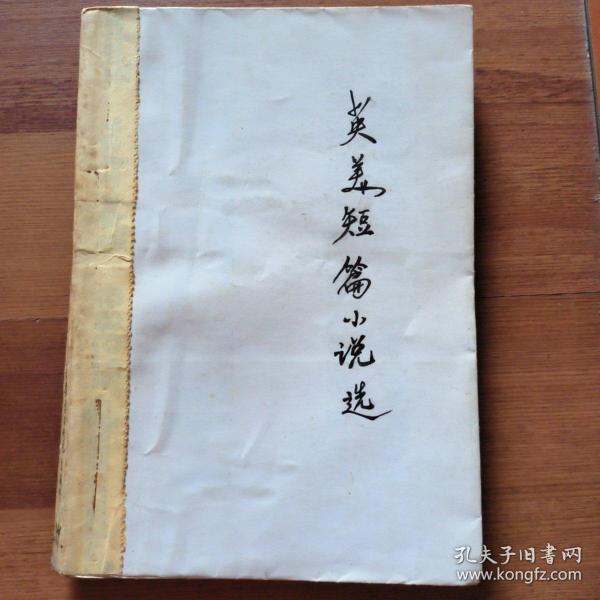 英美短篇小说选
孔夫子旧書网
www.kongfz.com